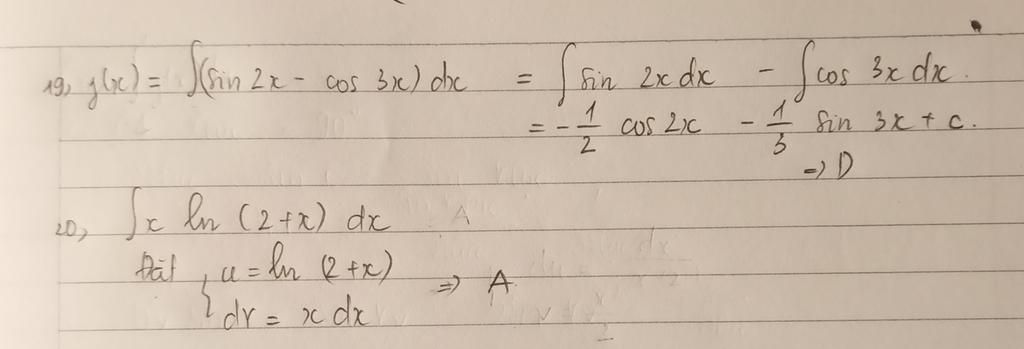 19, f(x) = ∫(sin 2x - cos 3x) dx = ∫ sin 2x dx - ∫ cos 3x dx.
= - 1/2 cos 2x - 1/3 sin 3x + c.
=> D
20, ∫ x ln (2+x) dx A
Đặt { u = ln (2+x) => A
dv = x dx